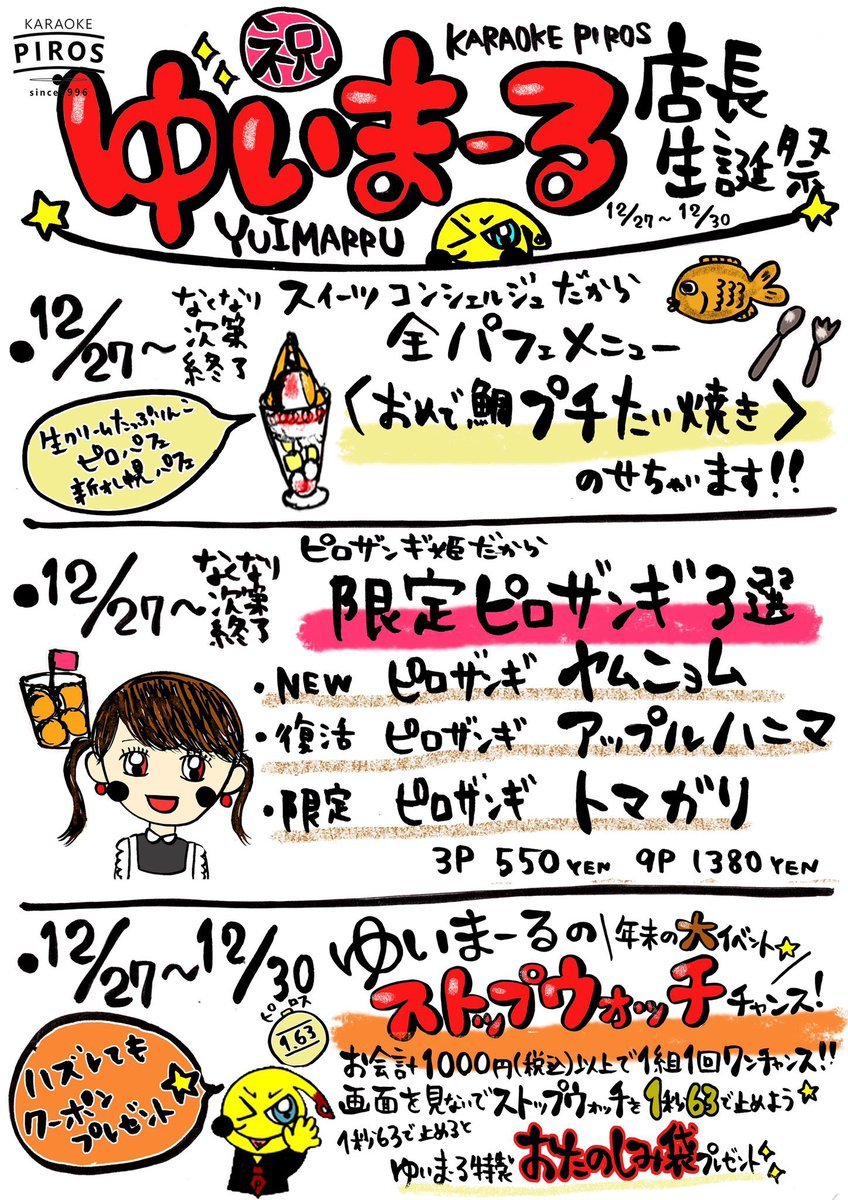 KARAOKE
PIROS
since 1996
祝
KARAOKE PIROS
ゆいまーる
店長
生誕祭
YUIMARRU
12/27〜12/30
12/27〜
なくなり
次第
終了
スイーツコンシェルジュだから
全パフェメニュー
〈おめで鯛プチたい焼き〉
のせちゃいます!!
生クリームたっぷりんこ
ピロパフェ
新札幌パフェ
12/27〜
なくなり
次第
終了
ピロザンギ姫だから
限定ピロザンギ3選
・NEW ピロザンギ ヤムニョム
・復活 ピロザンギ アップルハニマ
・限定 ピロザンギ トマガリ
3P 550YEN 9P 1380YEN
12/27〜12/30
ゆいまーるの\年末の大イベント/
ストップウォッチチャンス!
ピロス
1.63
ハズレても
クーポン
プレゼント
お会計1000円(税込)以上で1組1回ワンチャンス!!
画面を見ないでストップウォッチを1秒63で止めよう
1秒63で止めると
ゆいまーる特製おたのしみ袋プレゼント